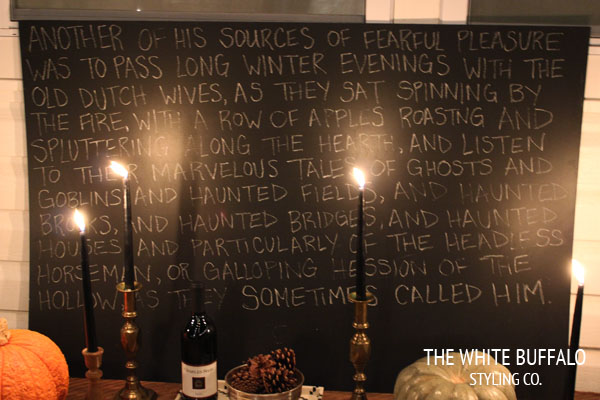 ANOTHER OF HIS SOURCES OF FEARFUL PLEASURE
WAS TO PASS LONG WINTER EVENINGS WITH THE
OLD DUTCH WIVES, AS THEY SAT SPINNING BY
THE FIRE, WITH A ROW OF APPLES ROASTNG AND
SPLUTTERING ALONG THE HEARTH, AND LISTEN
TO THEIR MARVELOUS TALES OF GHOSTS AND
GOBLINS AND HAUNTED FIELDS, AND HAUNTED
BROOKS, AND HAUNTED BRIDGES, AND HAUNTED
HOUSES AND PARTICULARLY OF THE HEADLESS
HORSEMAN, OR GALLOPING HESSION OF THE
HOLLOW AS THEY SOMETIMES CALLED HIM.
THE WHITE BUFFALO
STYLING CO.